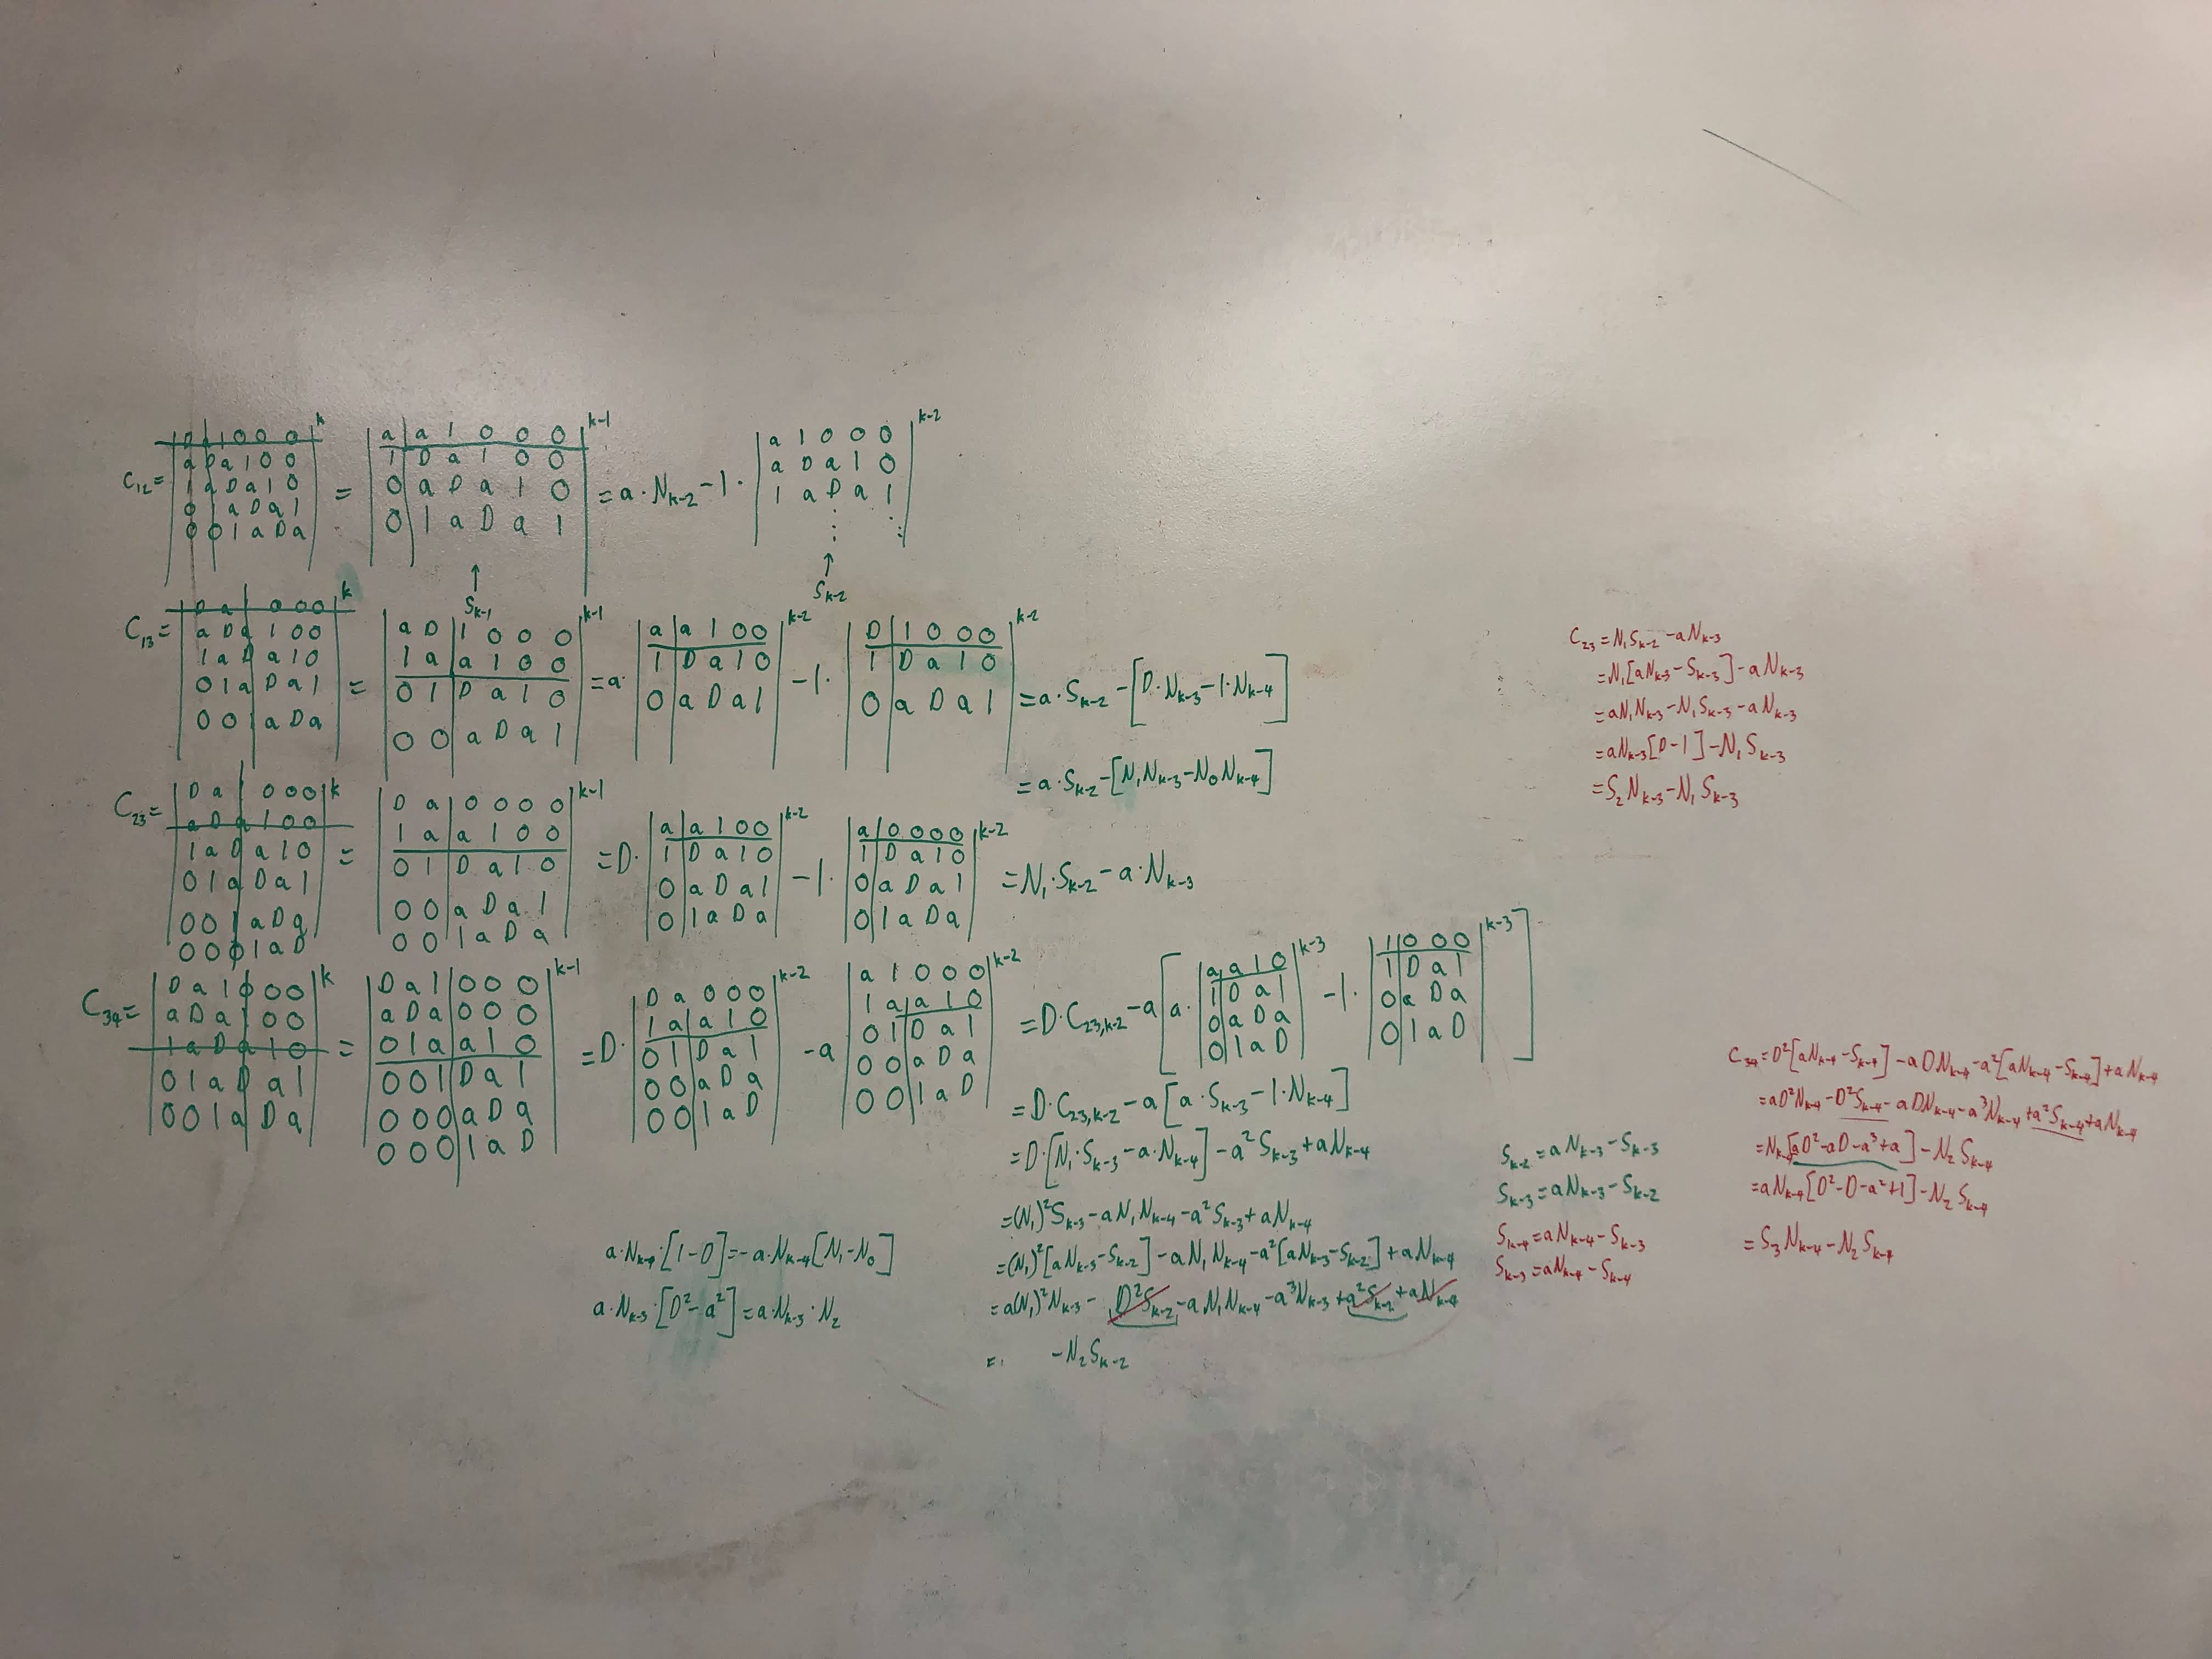 C₁₂ = |D a 1 0 0 0; a D a 1 0 0; 1 a D a 1 0; 0 1 a D a 1; 0 0 1 a D a|^k = |a a 1 0 0 0; 1 D a 1 0 0; 0 a D a 1 0; 0 1 a D a 1|^{k-1} = a·N_{k-2} - 1·|a 1 0 0 0; a D a 1 0; 1 a D a 1; ⋮ ⋱|^{k-2}
↑ S_{k-1} ↑ S_{k-2}
C₁₃ = |D a 1 0 0 0; a D a 1 0 0; 1 a D a 1 0; 0 1 a D a 1; 0 0 1 a D a|^k = |a D 1 0 0 0; 1 a a 1 0 0; 0 1 D a 1 0; 0 0 a D a 1|^{k-1} = a·|a a 1 0 0; 1 D a 1 0; 0 a D a 1|^{k-2} - 1·|D 1 0 0 0; 1 D a 1 0; 0 a D a 1|^{k-2} = a·S_{k-2} - [D·N_{k-3} - 1·N_{k-4}]
= a·S_{k-2} - [N₁N_{k-3} - N₀N_{k-4}]
C₂₃ = |D a 1 0 0 0; a D a 1 0 0; 1 a D a 1 0; 0 1 a D a 1; 0 0 1 a D a; 0 0 0 1 a D|^k = |D a 0 0 0 0; 1 a a 1 0 0; 0 1 D a 1 0; 0 0 a D a 1; 0 0 1 a D a|^{k-1} = D·|a a 1 0 0; 1 D a 1 0; 0 a D a 1; 0 1 a D a|^{k-2} - 1·|a 0 0 0 0; 1 D a 1 0; 0 a D a 1; 0 1 a D a|^{k-2} = N₁·S_{k-2} - a·N_{k-3}
C₃₄ = |D a 1 0 0 0; a D a 1 0 0; 1 a D a 1 0; 0 1 a D a 1; 0 0 1 a D a|^k = |D a 1 0 0 0; a D a 0 0 0; 0 1 a a 1 0; 0 0 1 D a 1; 0 0 0 a D a; 0 0 0 1 a D|^{k-1} = D·|D a 0 0 0; 1 a a 1 0; 0 1 D a 1; 0 0 a D a; 0 0 1 a D|^{k-2} - a|a 1 0 0 0; 1 a a 1 0; 0 1 D a 1; 0 0 a D a; 0 0 1 a D|^{k-2} = D·C_{23,k-2} - a[a·|a a 1 0; 1 D a 1; 0 a D a; 0 1 a D|^{k-3} - 1·|1 0 0 0; 1 D a 1; 0 a D a; 0 1 a D|^{k-3}]
= D·C_{23,k-2} - a[a·S_{k-3} - 1·N_{k-4}]
= D·[N₁·S_{k-3} - a·N_{k-4}] - a²S_{k-3} + aN_{k-4}
= (N₁)²S_{k-3} - aN₁N_{k-4} - a²S_{k-3} + aN_{k-4}
= (N₁)²[aN_{k-3} - S_{k-2}] - aN₁N_{k-4} - a²[aN_{k-3} - S_{k-2}] + aN_{k-4}
= a(N₁)²N_{k-3} - D²S_{k-2} - aN₁N_{k-4} - a³N_{k-3} + a²S_{k-2} + aN_{k-4}
= - N₂S_{k-2}
a·N_{k-4}·[1-D] = -a·N_{k-4}[N₁-N₀]
a·N_{k-3}·[D²-a²] = a·N_{k-3}·N₂
S_{k-2} = aN_{k-3} - S_{k-3}
S_{k-3} = aN_{k-3} - S_{k-2}
S_{k-4} = aN_{k-4} - S_{k-3}
S_{k-3} = aN_{k-4} - S_{k-4}
C₂₃ = N₁S_{k-2} - aN_{k-3}
= N₁[aN_{k-3} - S_{k-3}] - aN_{k-3}
= aN₁N_{k-3} - N₁S_{k-3} - aN_{k-3}
= aN_{k-3}[D-1] - N₁S_{k-3}
= S₂N_{k-3} - N₁S_{k-3}
C₃₄ = D²[aN_{k-4} - S_{k-4}] - aDN_{k-4} - a²[aN_{k-4} - S_{k-4}] + aN_{k-4}
= aD²N_{k-4} - D²S_{k-4} - aDN_{k-4} - a³N_{k-4} + a²S_{k-4} + aN_{k-4}
= N_{k-4}[aD² - aD - a³ + a] - N₂S_{k-4}
= aN_{k-4}[D² - D - a² + 1] - N₂S_{k-4}
= S₃N_{k-4} - N₂S_{k-4}